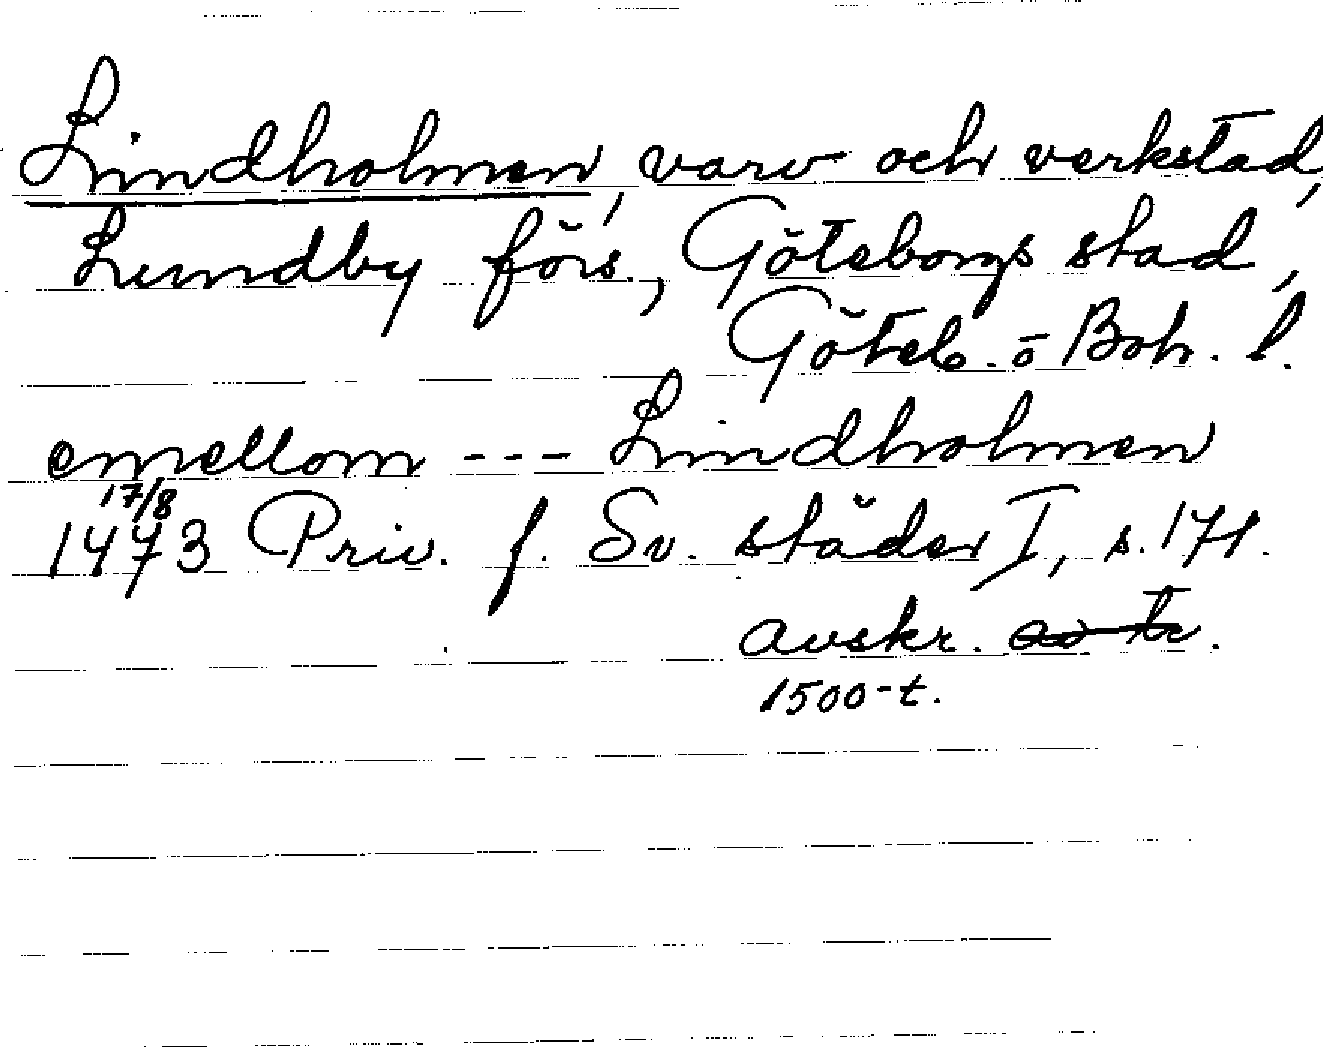 Lindholmen, varv och verkstad,
Lundby förs., Göteborgs stad,
Göteb. o Boh. l.
emellom --- Lindholmen
17/8
1473 Priv. f. Sv. städer I, s. 171.
avskr.
1500-t.